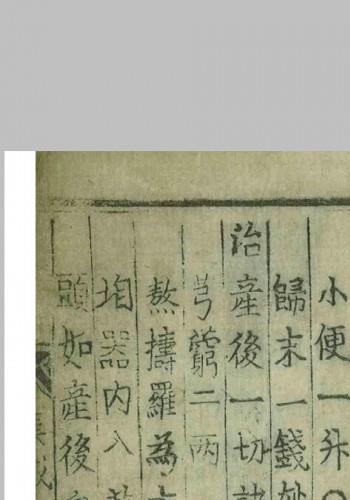 小便一升
歸末一錢
治產後一切
芎藭二两
熬擣羅為
垍器内入
頭如產後